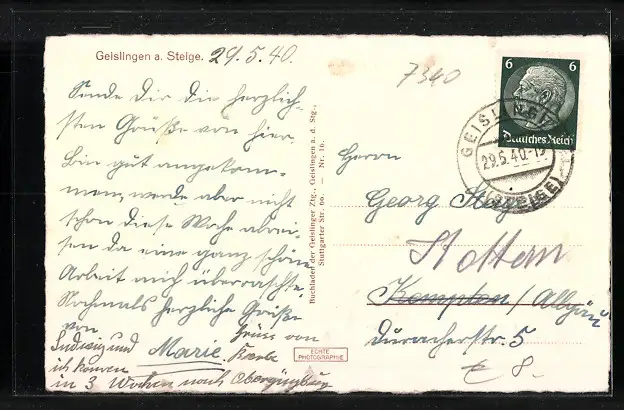 Geislingen a. Steige. 29.5.40.
Sende Dir die herzlich-
sten Grüße von hier.
Bin gut angekom-
men, werde aber nicht
schon diese Woche abrei-
sen da eine ganz schöne
Arbeit mich überraschte.
Nochmals herzliche Grüße
von
Marie.
Ludwig und
ich kommen
in 3 Wochen nach Obergünzburg
Grüss von
Buchladen der Geislinger Ztg., Geislingen a. d. Stg.,
Stuttgarter Str. 60. — Nr. 16.
ECHTE
PHOTOGRAPHIE
7340
6 6
Deutsches Reich
GEISLINGEN
29.5.40.
(STEIGE)
Herrn
Georg
Kottern
Kempten / Allgäu
Duracherstr. 5
€ 8.